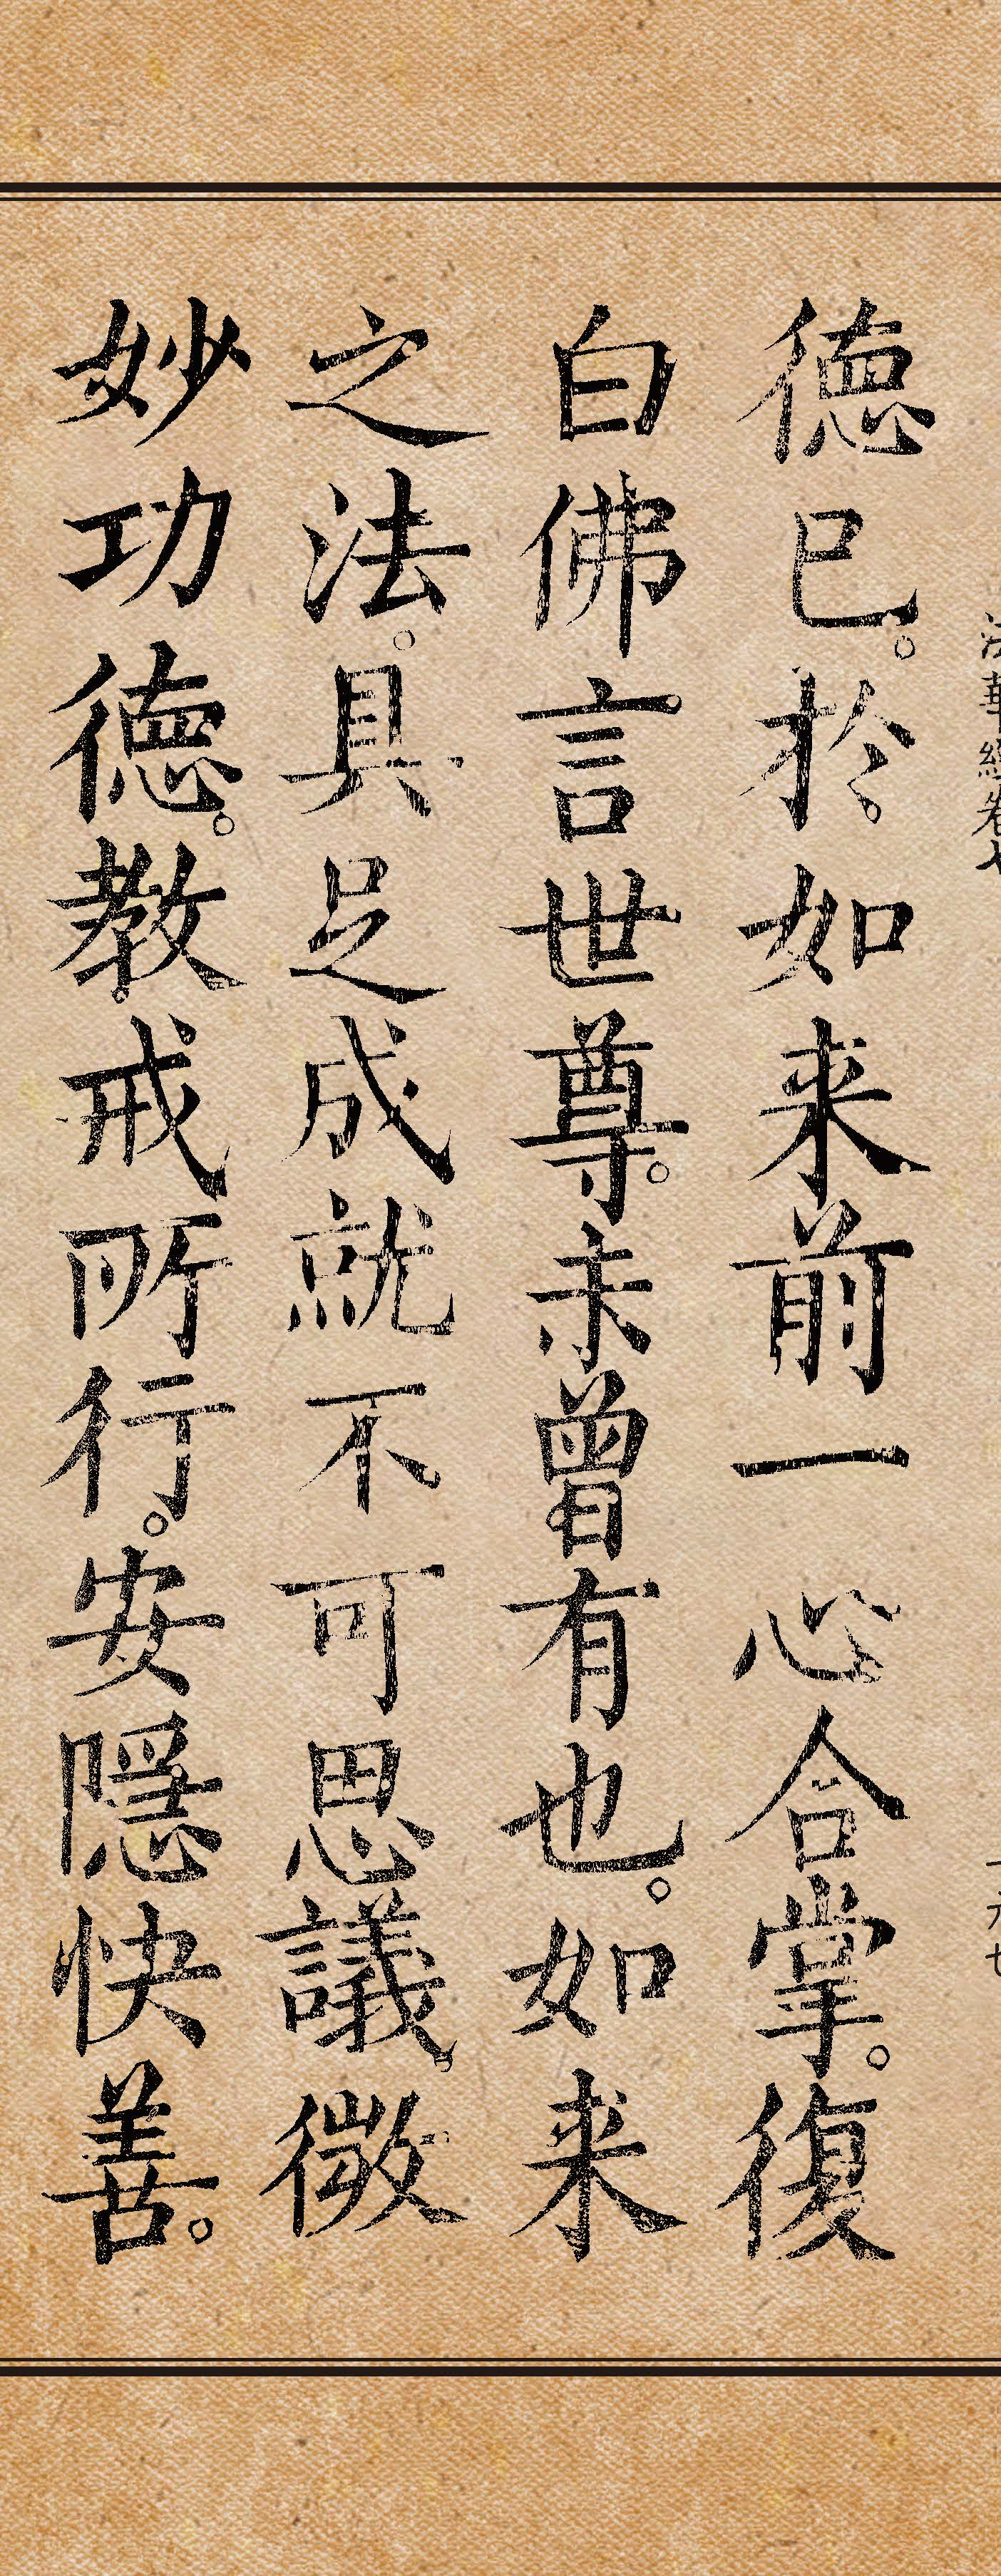 法華經卷七
德已。於如来前一心合掌。復
白佛言世尊。未曾有也。如来
之法。具足成就不可思議。微
妙功德。教戒所行。安隱快善。